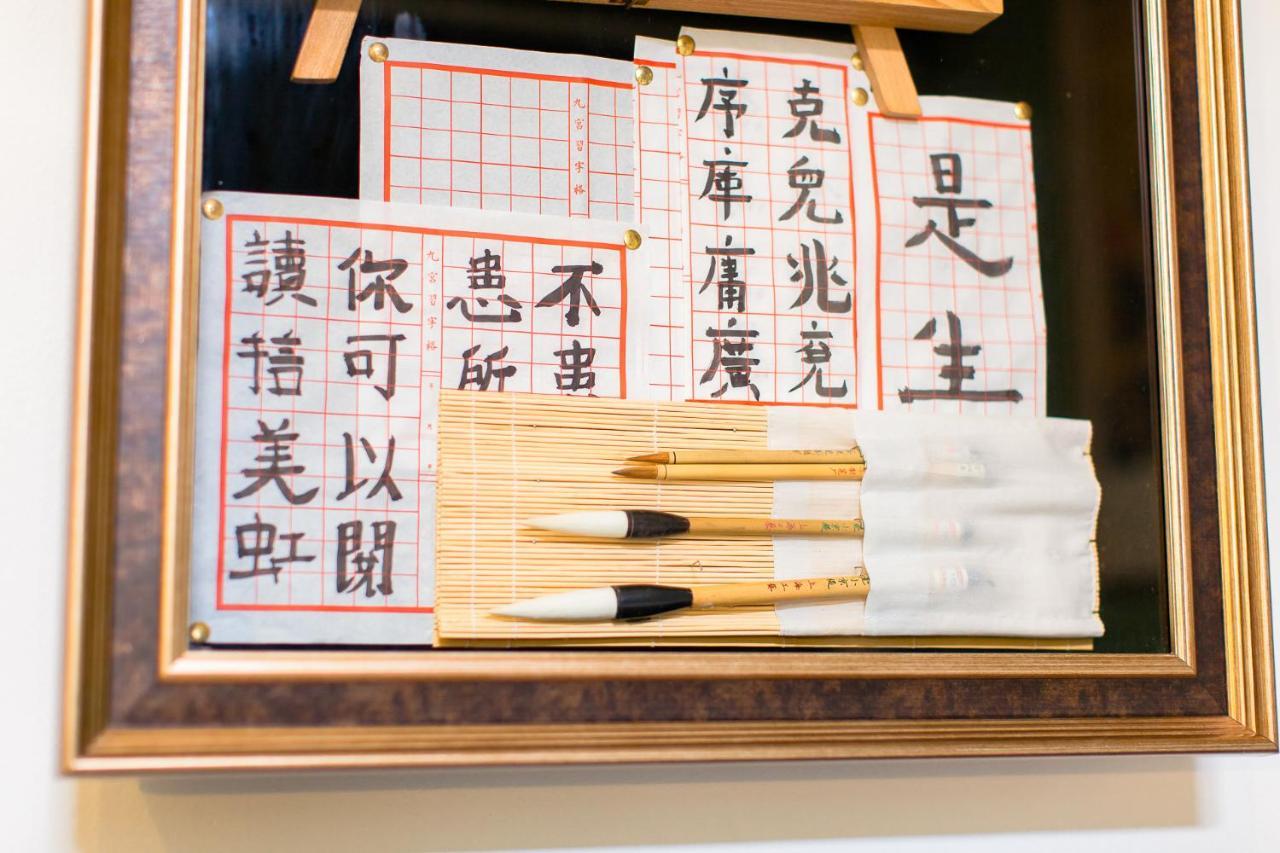 是生
克免兆充
序庫庸廣
九宮習字格
不患
患所
九宮習字格
你可以閱
讀信美虹